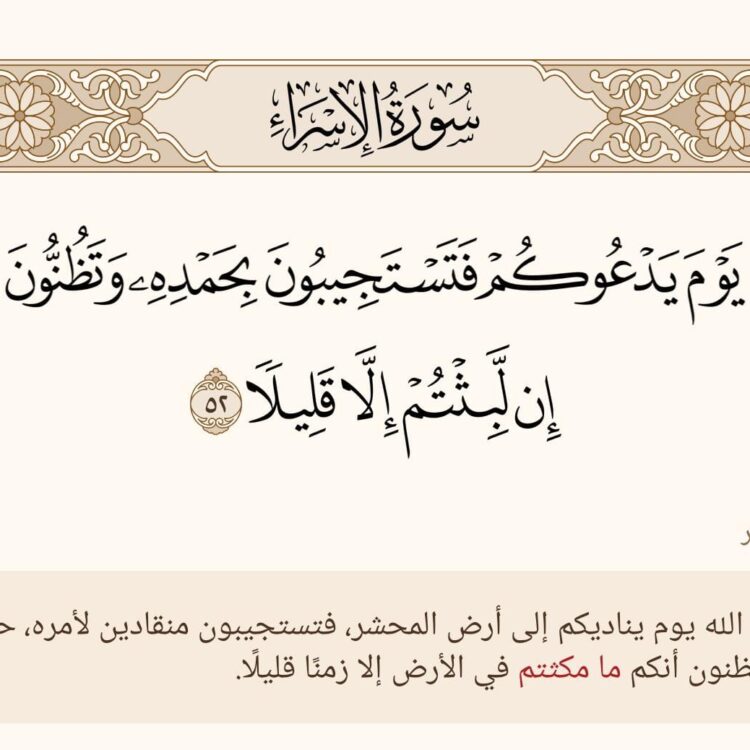 سُورَةُ الإِسْرَاءِ
يَوْمَ يَدْعُوكُمْ فَتَسْتَجِيبُونَ بِحَمْدِهِۦ وَتَظُنُّونَ
إِن لَّبِثْتُمْ إِلَّا قَلِيلًا ٥٢
الله يوم يناديكم إلى أرض المحشر، فتستجيبون منقادين لأمره،
أنكم ما مكثتم في الأرض إلا زمنًا قليلًا.